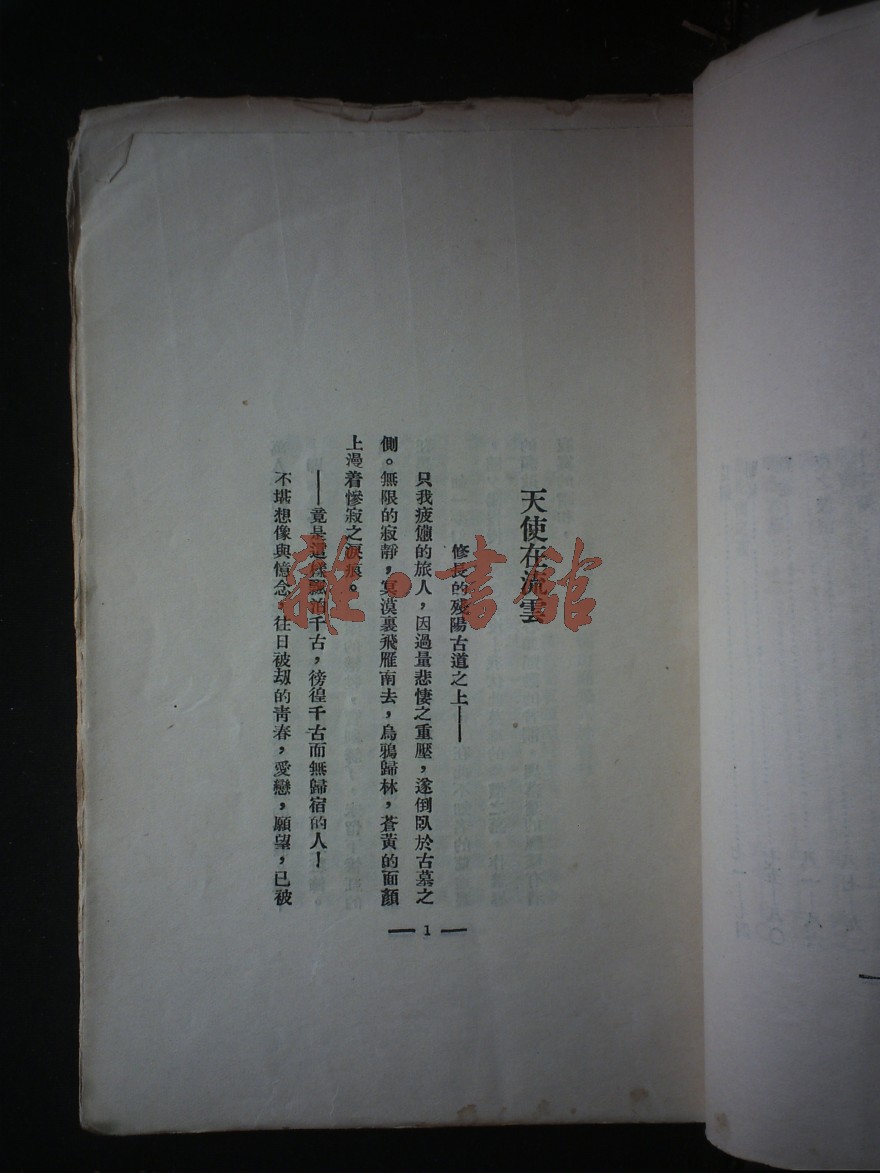 天使在流雲
修長的残陽古道之上——
只我疲憊的旅人，因過量悲悽之重壓，遂倒臥於古墓之
側。無限的寂靜，冥漠裏飛雁南去，烏鴉歸林，蒼黃的面顏
上漫着慘寂之淚痕。
——竟是這樣飄泊千古，徬徨千古而無歸宿的人！
不堪想像與憶念，往日被劫的青春，愛戀，願望，已被
— 1 —
雜·書館